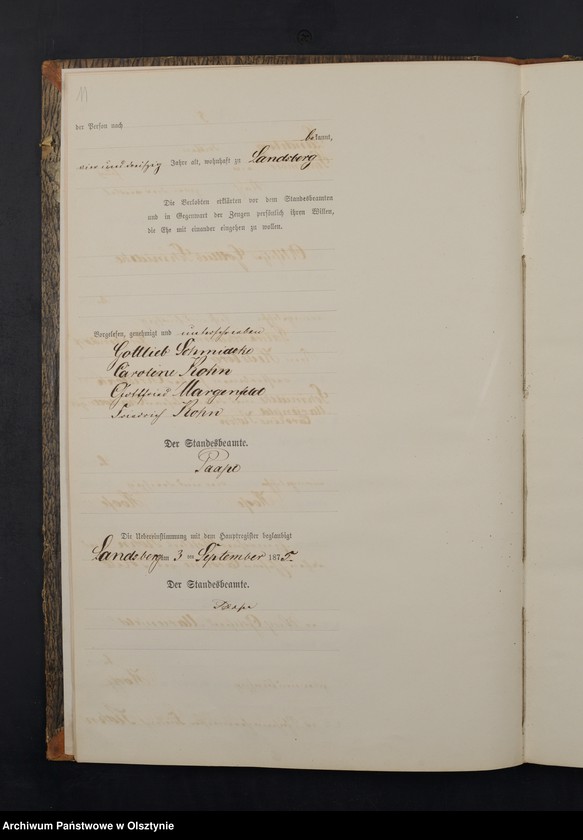 11
der Person nach
bekannt,
vier und dreißig Jahre alt, wohnhaft zu Landsberg
Die Verlobten erklärten vor dem Standesbeamten
und in Gegenwart der Zeugen persönlich ihren Willen,
die Ehe mit einander eingehen zu wollen.
Vorgelesen, genehmigt und unterschrieben
Gottlieb Schmidtke
Carolene Kohn
Gottfried Margenfeld
Friedrich Kohn
Der Standesbeamte.
Paape
Die Uebereinstimmung mit dem Hauptregister beglaubigt
Landsberg am 3 ten September 1875.
Der Standesbeamte.
Paape
Archiwum Państwowe w Olsztynie